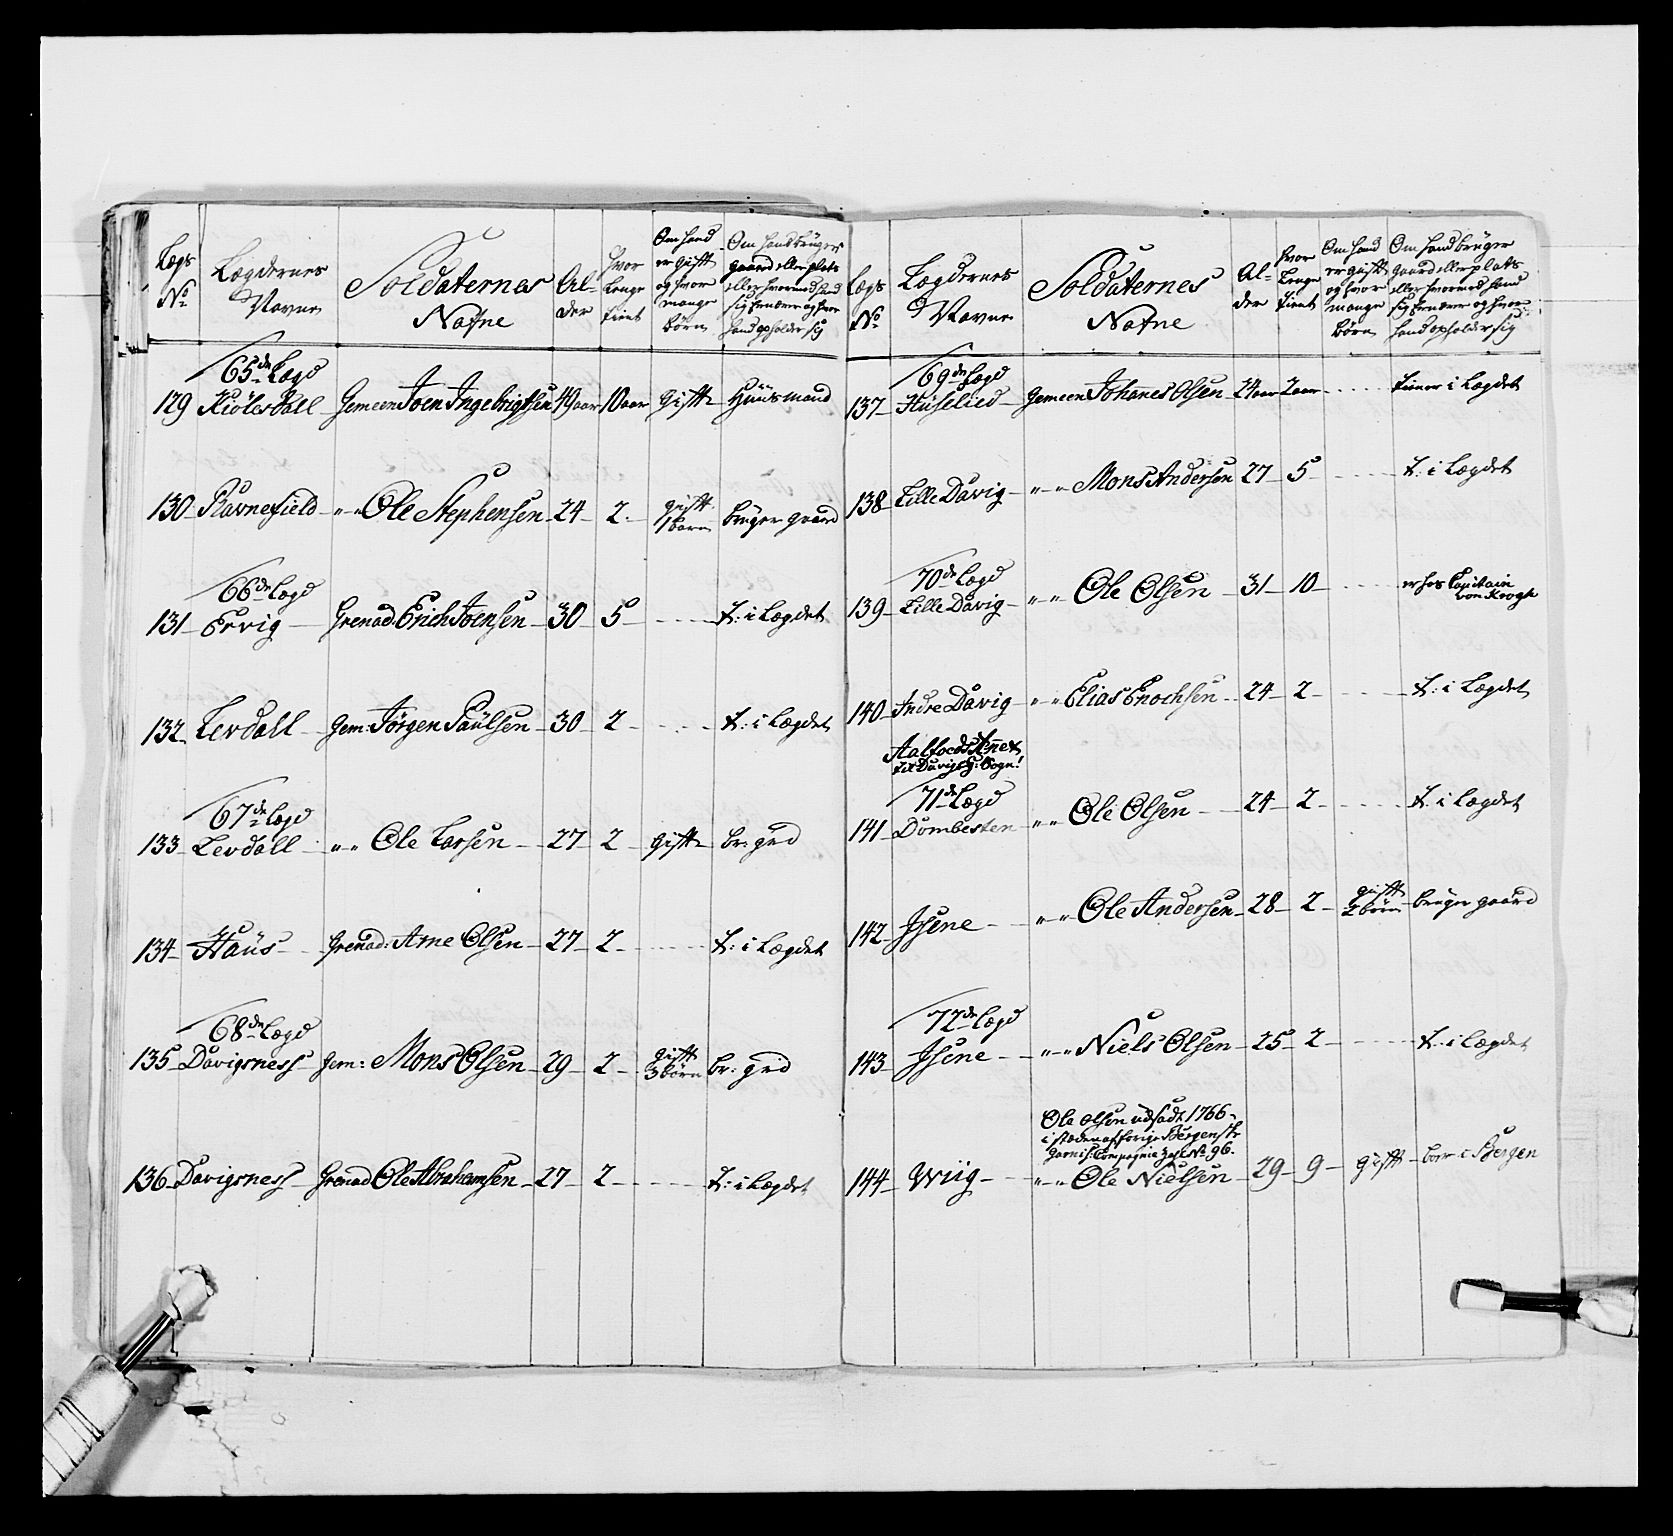 Lægs No Lægdernes Navne Soldaternes Nafne Al-der Hvor Lenge tient Om hand er gift og hvor mange børn Om hand brüger gaard eller plats eller hvormed hand sig ernærer og hvor hand opholder sig
65de Lægd
129 Kiölesdall Gemeen Joen Ingebrigtsen 49aar 10aar gift Hüüsmand
130 Stavnefield " " Ole Stephensen 24 2 gift 1 barn brüger gaard
66de Lægd
131 Ervig Grenad. Erich Joensen 30 5 t: i Lægdet
132 Levdall Gem: Jörgen Paülsen 30 2 t: i Lægdet
67de Lægd
133 Levdall " " Ole Larsen 27 2 gift br: grd
134 Haüs Grenad: Arne Olsen 27 2 t: i Lægdet
68de Lægd
135 Davigsness Gem: Mons Olsen 29 2 gift 3 børn br: grd
136 Davigsness Grenad Ole Abrahamsen 27 2 t: i Lægdet
Lægs No Lægdernes Navne Soldaternes Nafne Al-der hvor Lenge tient Om hand er gift og hvor mange børn Om hand brüger gaard eller plats eller hvormed hand sig ernærer og hvor hand opholder sig
69de Lægd
137 Hüselied Gemeen Johanes Olsen 24aar 2aar tiener i Lægdet
138 Lille Davig " " Mons Andersen 27 5 t: i Lægdet
70de Lægd
139 Lille Davig " " Ole Olsen 31 10 er hos Capitain von Krogh
140 Indre Davig " " Elias Enochsen 24 2 t: i Lægdet
Aalfoeds Anex
til Davigs H: Sogn!
71de Lægd
141 Dombesten " " Ole Olsen 24 2 t: i Lægdet
142 Isene " " Ole Andersen 28 2 gift 2 børn brüger gaard
72de Lægd
143 Isene " " Niels Olsen 25 2 t. i Lægdet
Ole olsen udsadt 1766
i stæden af forige Bergenske
Garnis: Compagnie No 96.
144 Wiig " " Ole Nielsen 29 9 gift boer i Bergen